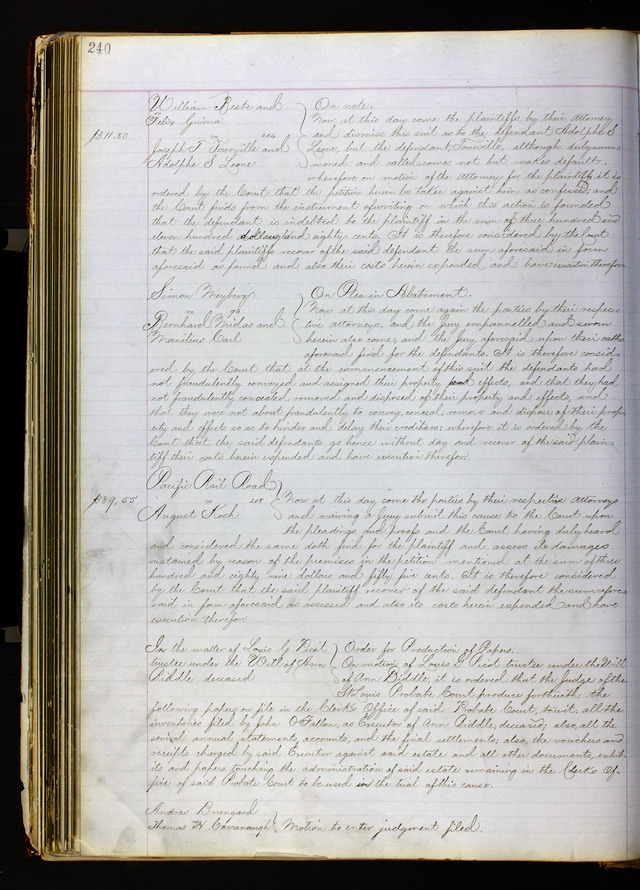 240
William Beste and } On note.
Felix Grima Now at this day come the plaintiffs by their Attorney
$311.80 vs and dismiss this suit as to the defendant Adolphe S
Joseph T Tourville and Leone, but the defendant Tourville, although duly sum-
Adolphe S Leone moned and called, comes not but makes default,
wherefore on motion of the Attorney for the plaintiffs, it is
ordered by the Court that the petition herein be taken against him as confessed, and
the Court finds from the instrument of writing on which this action is founded
that the defendant is indebted to the plaintiff in the sum of three hundred and
eleven hundred dollars and eighty cents. It is therefore considered by the Court
that the said plaintiffs recover of the said defendant the sum aforesaid in form
aforesaid as found and also their costs herein expended and have execution therefor
Simon Meyberg } On Plea in Abatement.
vs Now at this day come again the parties by their respec-
Bernhard Midas and tive attorneys, and the Jury empannelled and sworn
Manilius Carl herein also come, and the Jury aforesaid upon their oaths
aforesaid find for the defendants. It is therefore consid-
ered by the Court that at the commencement of this suit the defendants had
not fraudulently conveyed and assigned their property and effects, and that they had
not fraudulently concealed removed and disposed of their property and effects, and
that they were not about fraudulently to convey, conceal, remove and dispose of their prop-
erty and effects so as to hinder and delay their creditors: wherefore it is ordered by the
Court that the said defendants go hence without day and recover of the said plain-
tiff their costs herein expended and have execution therefor.
Pacific Rail Road }
$89.55 vs Now at this day come the parties by their respective Attorneys
August Koch and waiving a Jury submit this cause to the Court upon
the pleadings and proofs and the Court having duly heard
and considered the same doth find for the plaintiff and assess its damages
sustained by reason of the premises in the petition mentioned at the sum of three
hundred and eighty nine dollars and fifty five cents. It is therefore considered
by the Court that the said plaintiff recover of the said defendant the sum afore-
said in form aforesaid as assessed and also its costs herein expended and have
execution therefor.
In the matter of Louis G Picot } Order for Production of Papers.
trustee under the Will of Ann On motion of Louis G Picot trustee under the Will
Biddle deceased of Ann Biddle, it is ordered that the Judge of the
St Louis Probate Court produce forthwith the
following papers on file in the Clerk's Office of said Probate Court, to wit: all the
inventories filed by John O'Fallon, as Executor of Ann Biddle, deceased, also, all the
several annual statements, accounts, and the final settlements; also, the vouchers and
receipts charged by said Executor against said estate and all other documents, exhib-
its and papers touching the administration of said estate remaining in the Clerk's Of-
fice of said Probate Court to be used in the trial of this cause.
Andrew Bruengard }
Thomas W Cavanaugh Motion to enter judgment filed.